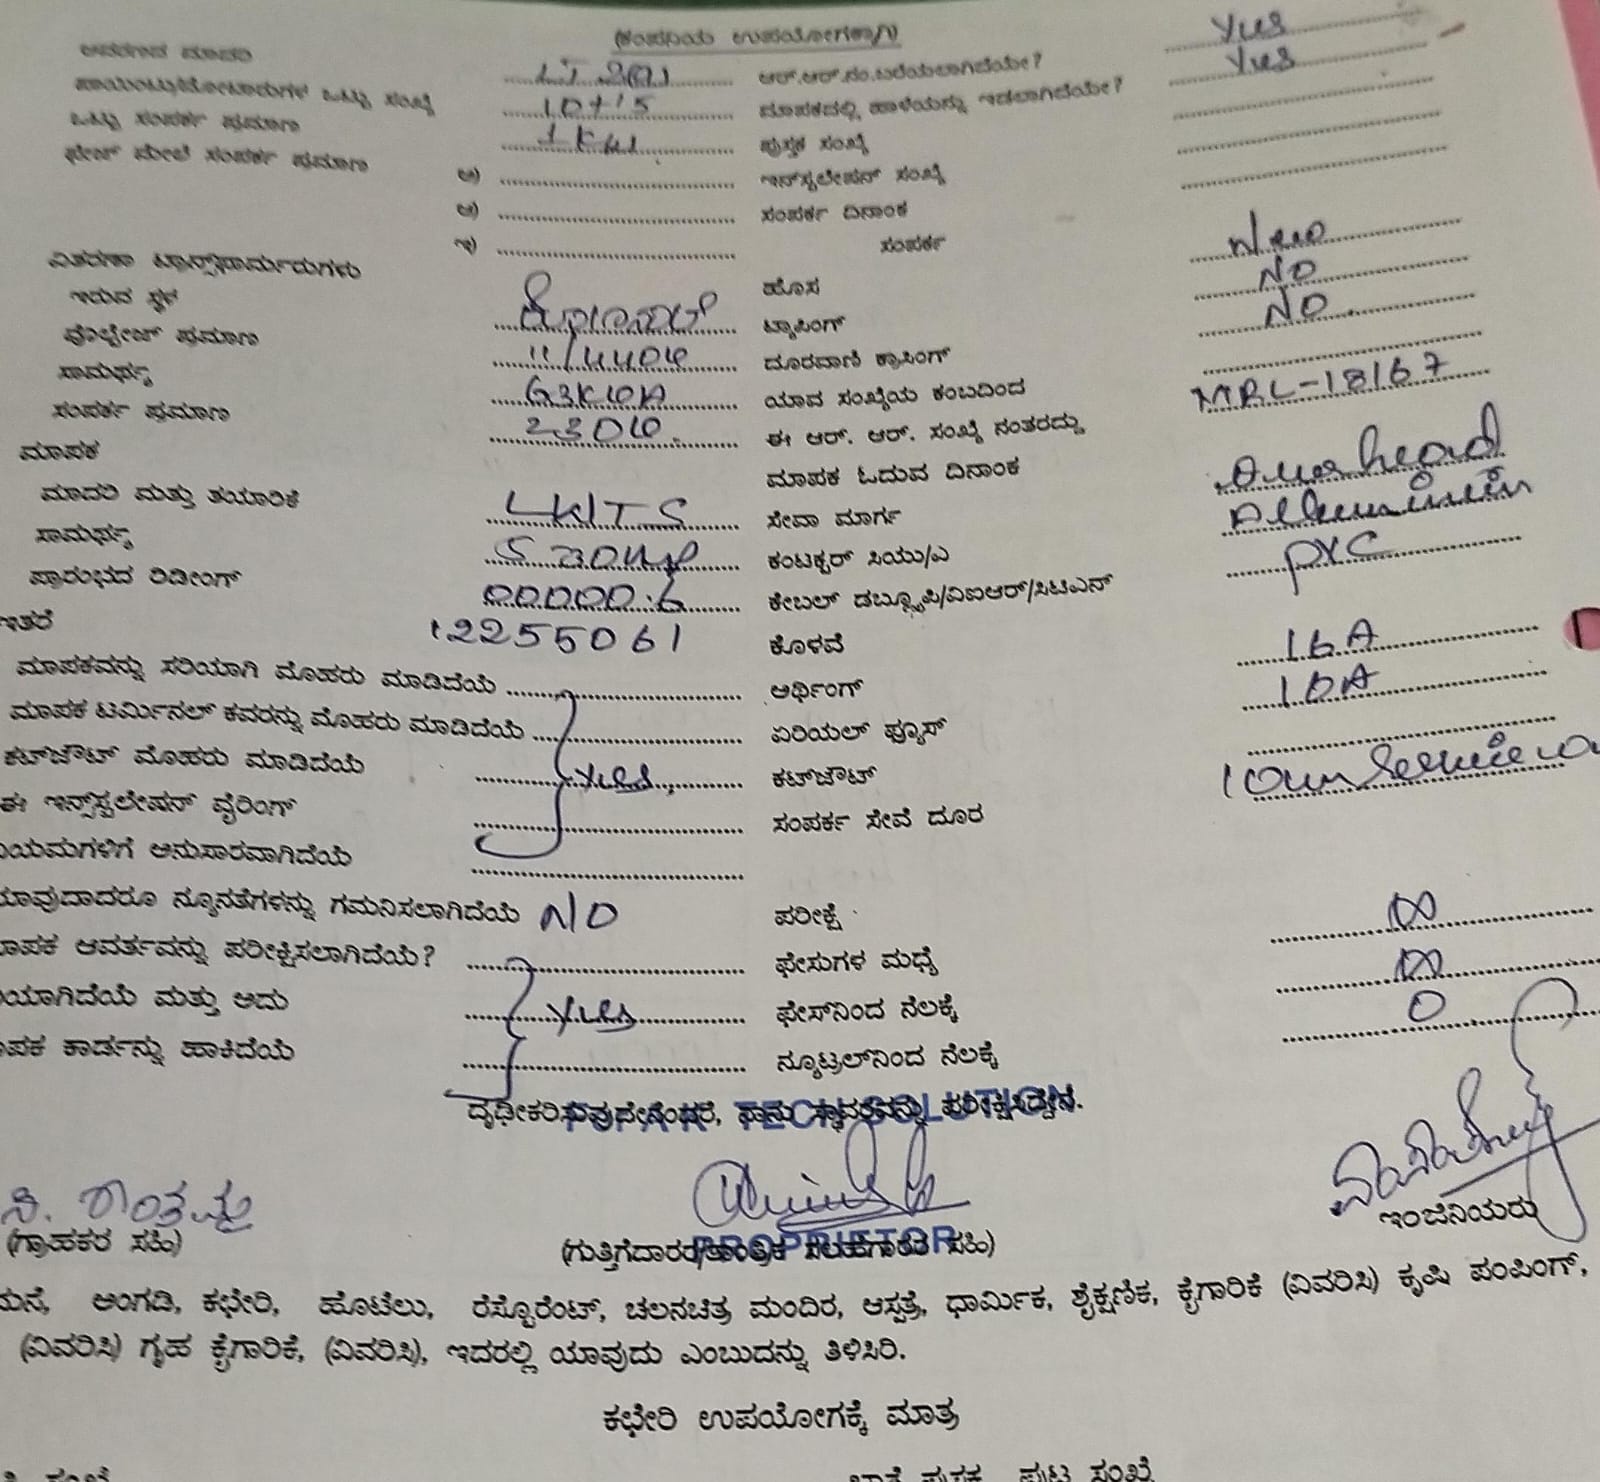 (ಕಂಪನಿಯ ಉಪಯೋಗಕ್ಕಾಗಿ)
ಆವರಣದ ಮಾದರಿ LT 2(a)
ಆರ್.ಆರ್.ನಂ.ಬರೆಯಲಾಗಿದೆಯೇ? Yes
ಪಾಯಿಂಟು/ಮೋಟಾರುಗಳ ಒಟ್ಟು ಸಂಖ್ಯೆ 10+5
ಮಾಪಕದಲ್ಲಿ ಹಾಳೆಯನ್ನು ಇಡಲಾಗಿದೆಯೇ? Yes
ಒಟ್ಟು ಸಂಪರ್ಕ ಪ್ರಮಾಣ 1KW
ಪುಸ್ತಕ ಸಂಖ್ಯೆ
ಫೇಜ್ ಮೇಲೆ ಸಂಪರ್ಕ ಪ್ರಮಾಣ ಅ)
ಇನ್‌ಸ್ಟಲೇಷನ್ ಸಂಖ್ಯೆ
ಆ) ಸಂಪರ್ಕ ದಿನಾಂಕ
ಇ) ಸಂಪರ್ಕ
ವಿತರಣಾ ಟ್ರಾನ್ಸ್‌ಫಾರ್ಮರುಗಳು
ಹೊಸ New
ಇರುವ ಸ್ಥಳ
ಟ್ಯಾಪಿಂಗ್ NO
ವೊಲ್ಟೇಜ್ ಪ್ರಮಾಣ 11/440V
ದೂರವಾಣಿ ಕ್ರಾಸಿಂಗ್ NO
ಸಾಮರ್ಥ್ಯ 63KVA
ಯಾವ ಸಂಖ್ಯೆಯ ಕಂಬದಿಂದ
ಸಂಪರ್ಕ ಪ್ರಮಾಣ 230V
ಈ ಆರ್. ಆರ್. ಸಂಖ್ಯೆ ನಂತರದ್ದು MRL-18167
ಮಾಪಕ
ಮಾಪಕ ಓದುವ ದಿನಾಂಕ
ಮಾದರಿ ಮತ್ತು ತಯಾರಿಕೆ L&TS
ಸೇವಾ ಮಾರ್ಗ Over head
ಸಾಮರ್ಥ್ಯ 5-30Amp
ಕಂಟಕ್ಟರ್ ಸಿಯು/ಎ Alluminium
ಪ್ರಾರಂಭದ ರಿಡೀಂಗ್ 00000.6
ಕೇಬಲ್ ಡಬ್ಲ್ಯೂಪಿ/ವಿಐಆರ್/ಸಿಟಿಎಸ್ PVC
ಇತರೆ 12255061
ಕೊಳವೆ
ಮಾಪಕವನ್ನು ಸರಿಯಾಗಿ ಮೊಹರು ಮಾಡಿದೆಯೆ
ಆರ್ಥಿಂಗ್ 16A
ಮಾಪಕ ಟರ್ಮಿನಲ್ ಕವರನ್ನು ಮೊಹರು ಮಾಡಿದೆಯೆ
ಏರಿಯಲ್ ಫ್ಯೂಸ್ 10A
ಕಟ್‌ಔಟ್ ಮೊಹರು ಮಾಡಿದೆಯೆ Yes
ಕಟ್‌ಔಟ್
ಈ ಇನ್ಸ್‌ಸ್ಟಲೇಷನ್ ವೈರಿಂಗ್
ಸಂಪರ್ಕ ಸೇವೆ ದೂರ
ಯಮಗಳಿಗೆ ಅನುಸಾರವಾಗಿದೆಯೆ
ಯಾವುದಾದರೂ ನ್ಯೂನತೆಗಳನ್ನು ಗಮನಿಸಲಾಗಿದೆಯೆ NO
ಪರೀಕ್ಷೆ ∞
ಪಕ ಆವರ್ತವನ್ನು ಪರೀಕ್ಷಿಸಲಾಗಿದೆಯೆ?
ಫೇಸುಗಳ ಮಧ್ಯೆ ∞
ಯಾಗಿದೆಯೆ ಮತ್ತು ಅದು Yes
ಫೇಸ್‌ನಿಂದ ನೆಲಕ್ಕೆ 0
ಪಕ ಕಾರ್ಡನ್ನು ಹಾಕಿದೆಯೆ
ನ್ಯೂಟ್ರಲ್‌ನಿಂದ ನೆಲಕ್ಕೆ
ದೃಢೀಕರಿಸುವುದೇನೆಂದರೆ, ನಾನು ಸ್ಥಾವರವನ್ನು ಪರೀಕ್ಷಿಸಿದ್ದೇನೆ.
TECH SOLUTION
ಸಿ. ಶಾಂತಮ್ಮ
(ಗ್ರಾಹಕರ ಸಹಿ)
(ಗುತ್ತಿಗೆದಾರರ/ತಾಂತ್ರಿಕ ಸಲಹೆಗಾರರ ಸಹಿ)
PROPRIETOR
ಇಂಜಿನಿಯರು
ಮನೆ, ಅಂಗಡಿ, ಕಛೇರಿ, ಹೊಟೆಲು, ರೆಸ್ಟೊರೆಂಟ್, ಚಲನಚಿತ್ರ ಮಂದಿರ, ಆಸ್ಪತ್ರೆ, ಧಾರ್ಮಿಕ, ಶೈಕ್ಷಣಿಕ, ಕೈಗಾರಿಕೆ (ವಿವರಿಸಿ) ಕೃಷಿ ಪಂಪಿಂಗ್,
(ವಿವರಿಸಿ) ಗೃಹ ಕೈಗಾರಿಕೆ, (ವಿವರಿಸಿ), ಇದರಲ್ಲಿ ಯಾವುದು ಎಂಬುದನ್ನು ತಿಳಿಸಿರಿ.
ಕಛೇರಿ ಉಪಯೋಗಕ್ಕೆ ಮಾತ್ರ